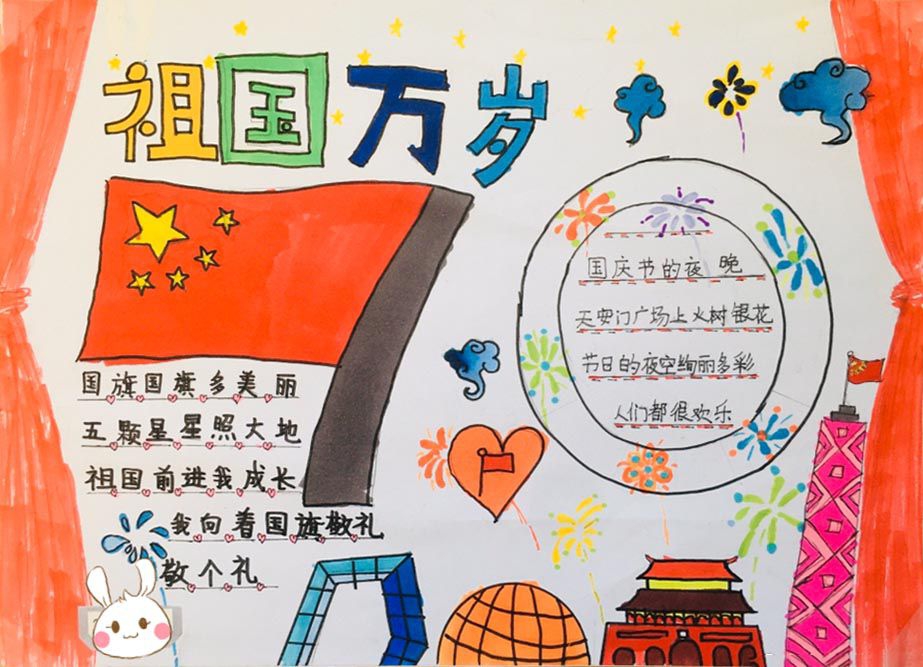 祖国万岁
国旗国旗多美丽
五颗星星照大地
祖国前进我成长
我向着国旗敬礼
敬个礼
国庆节的夜晚
天安门广场上火树银花
节日的夜空绚丽多彩
人们都很欢乐